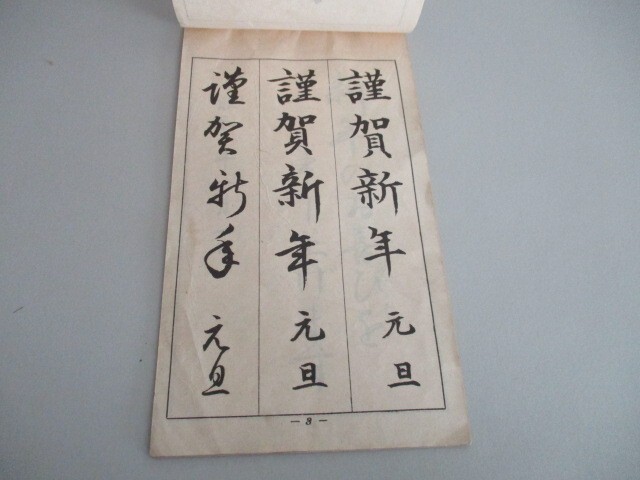 謹賀新年 元旦
謹賀新年 元旦
謹賀新年 元旦
— 3 —